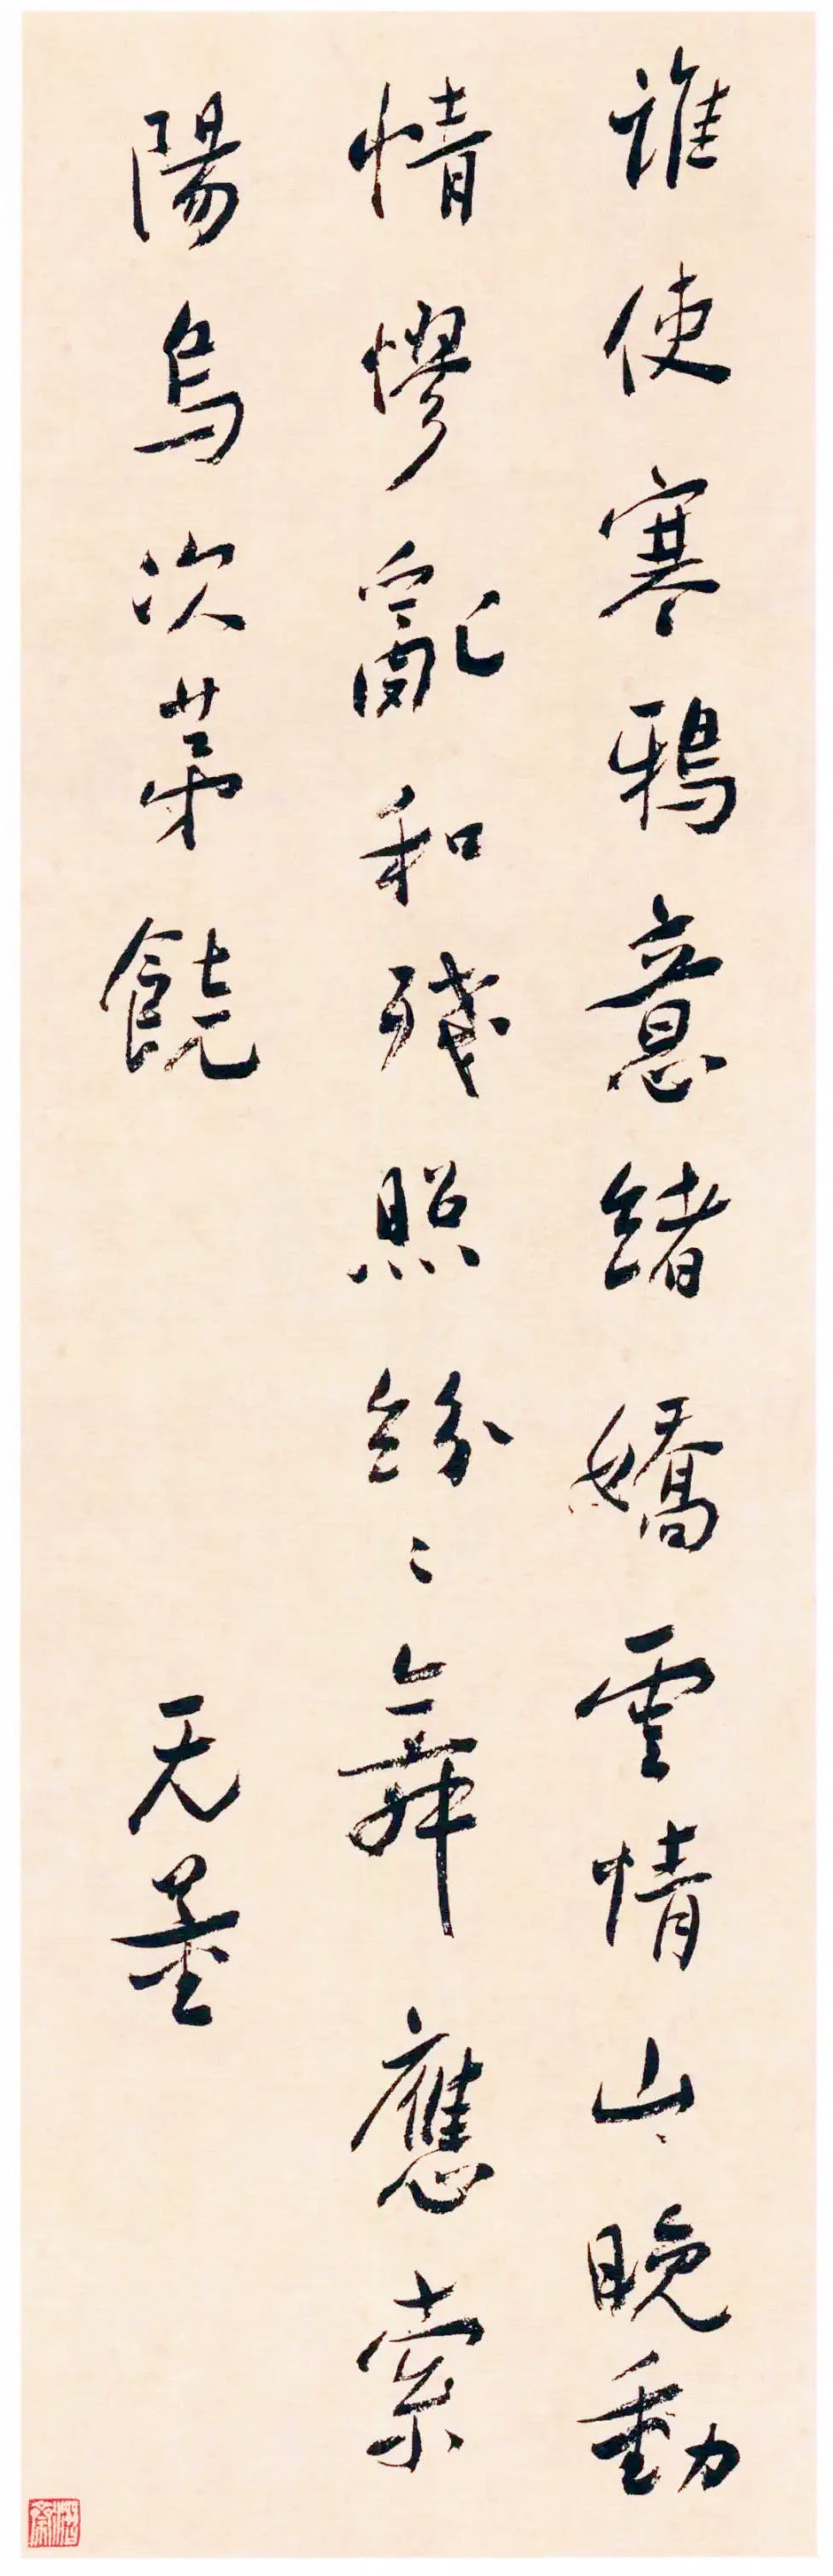 誰使寒鴉意緒嬌雲情山晚動
情憀亂和殘照紛〻舞應索
陽烏次苐饒
无量